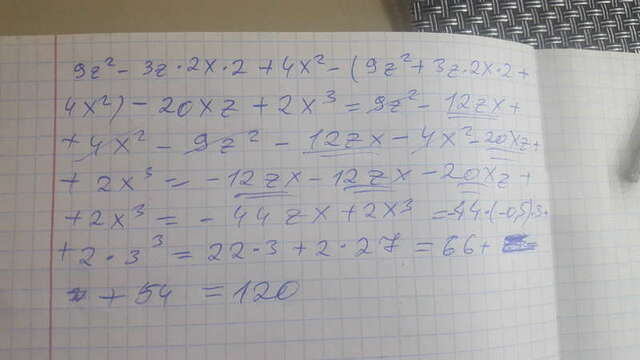 9z² - 3z·2x·2 + 4x² - (9z² + 3z·2x·2 +
4x²) - 20xz + 2x³ = 9z² - 12zx +
+ 4x² - 9z² - 12zx - 4x² - 20xz +
+ 2x³ = - 12zx - 12zx - 20xz +
+ 2x³ = - 44zx + 2x³ = -44·(-0,5)·3+
+ 2·3³ = 22·3 + 2·27 = 66 +
+ 54 = 120